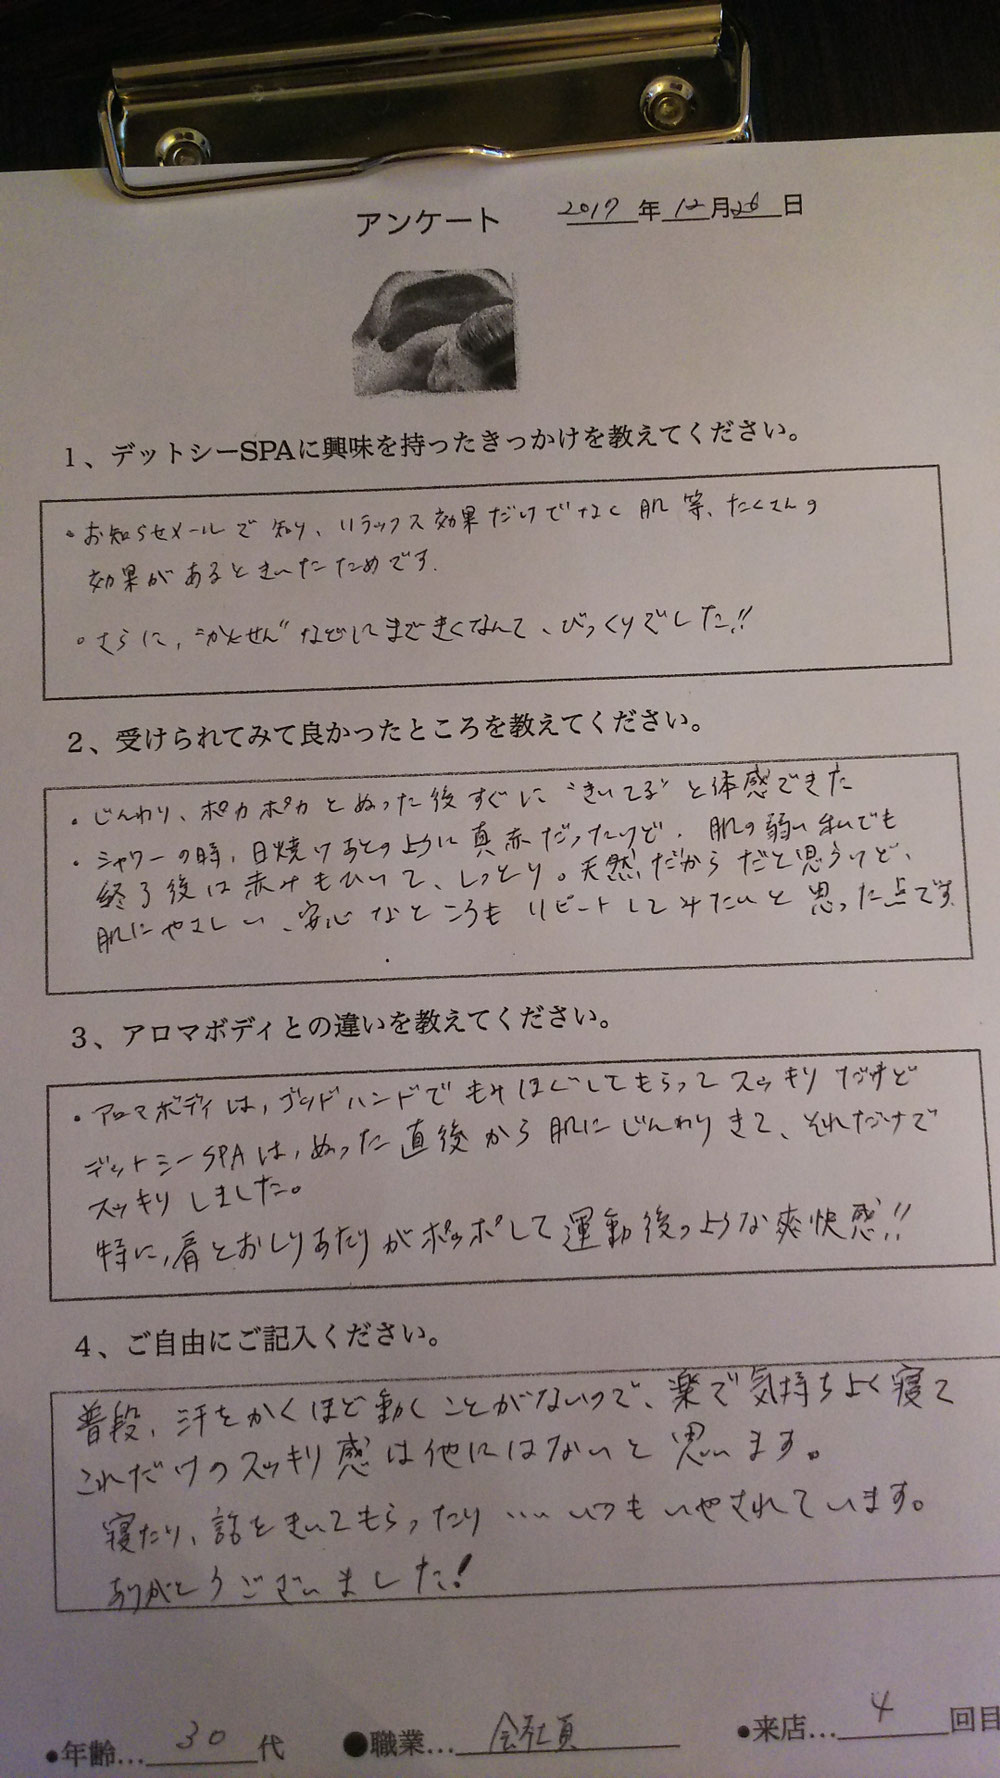 アンケート 2017年12月26日
1、デットシーSPAに興味を持ったきっかけを教えてください。
・お知らせメールで知り、リラックス効果だけでなく肌等、たくさんの
効果があるときいたためです。
・さらに、"かんせん"などにまできくなんて、びっくりでした!!
2、受けられてみて良かったところを教えてください。
・じんわり、ポカポカとぬった後すぐに"きいてる"と体感できた
・シャワーの時、日焼けあとのように真赤だったけど、肌の弱い私でも
終了後は赤みもひいて、しっとり。天然だからだと思うけど、
肌にやさしい、安心なところもリピートしてみたいと思った点です。
3、アロマボディとの違いを教えてください。
・アロマボディは、ゴッドハンドでもみほぐしてもらってスッキリだけど
デットシーSPAは、ぬった直後から肌にじんわりきて、それだけで
スッキリしました。
特に、肩とおしりあたりがポッポして運動後のような爽快感!!
4、ご自由にご記入ください。
普段、汗をかくほど動くことがないので、楽で気持ちよく寝て
これだけのスッキリ感は他にはないと思います。
寝たり、話をきいてもらったり…いつもいやされています。
ありがとうございました!
●年齢…30代 ●職業…会社員 ●来店…4回目